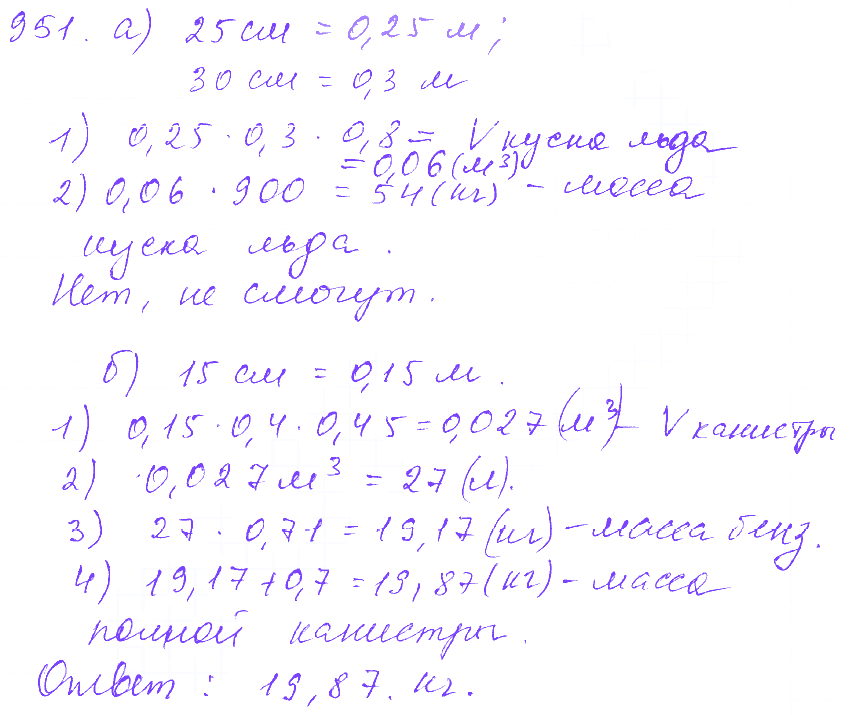 951. а) 25 см = 0,25 м;
30 см = 0,3 м
1) 0,25 · 0,3 · 0,8 = V куска льда
= 0,06 (м³)
2) 0,06 · 900 = 54 (кг) - масса
куска льда.
Нет, не смогут.
б) 15 см = 0,15 м.
1) 0,15 · 0,4 · 0,45 = 0,027 (м³) - V канистры
2) 0,027 м³ = 27 (л).
3) 27 · 0,71 = 19,17 (кг) - масса бенз.
4) 19,17 + 0,7 = 19,87 (кг) - масса
полной канистры.
Ответ: 19,87. кг.